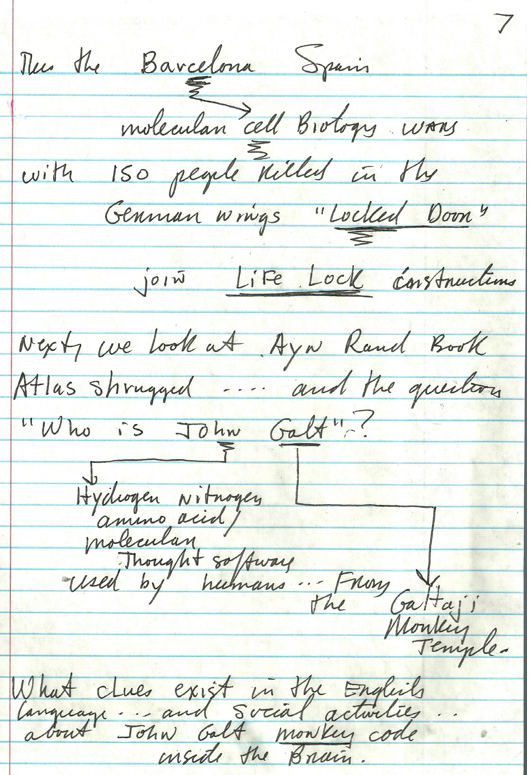 7
Thus the Barcelona Spain
molecular cell Biology wars
with 150 people killed in the
German wings "Locked Door"
join Life Lock constructions
Next, we look at Ayn Rand Book
Atlas shrugged .... and the question
"Who is John Galt"-?
Hydrogen Nitrogen
amino acid/
molecular
Thought software
used by humans ... From
the Galtaji
Monkey
Temple-
What clues exist in the English
language ... and social activities ..
about John Galt monkey code
inside the Brain.